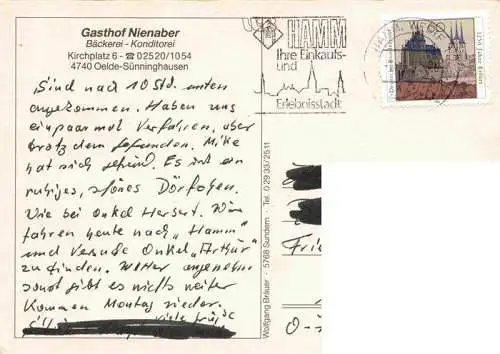 Gasthof Nienaber
Bäckerei - Konditorei
Kirchplatz 6 - ☎ 02520/1054
4740 Oelde-Sünninghausen
Sind nach 10 Std. unten
angekommen. Haben uns
ein paar mal verfahren, aber
trotz dem gefunden. Mike
hat sich gefreut. Es ist ein
ruhiges, schönes Dörfchen.
Wie bei Onkel Herbert. Wir
fahren heute nach "Hamm"
und Versuche Onkel "Arthur"
zu finden. Wetter angenehm
sonst gibt es nichts weiter
Kommen Montag wieder.
viele Grüße
HAMM
Ihre Einkaufs-
und
Erlebnisstadt
1250 Jahre Erfurt
Wolfgang Bräuer · 5768 Sundern · Tel. 0 29 33 / 25 11
Frie
O-